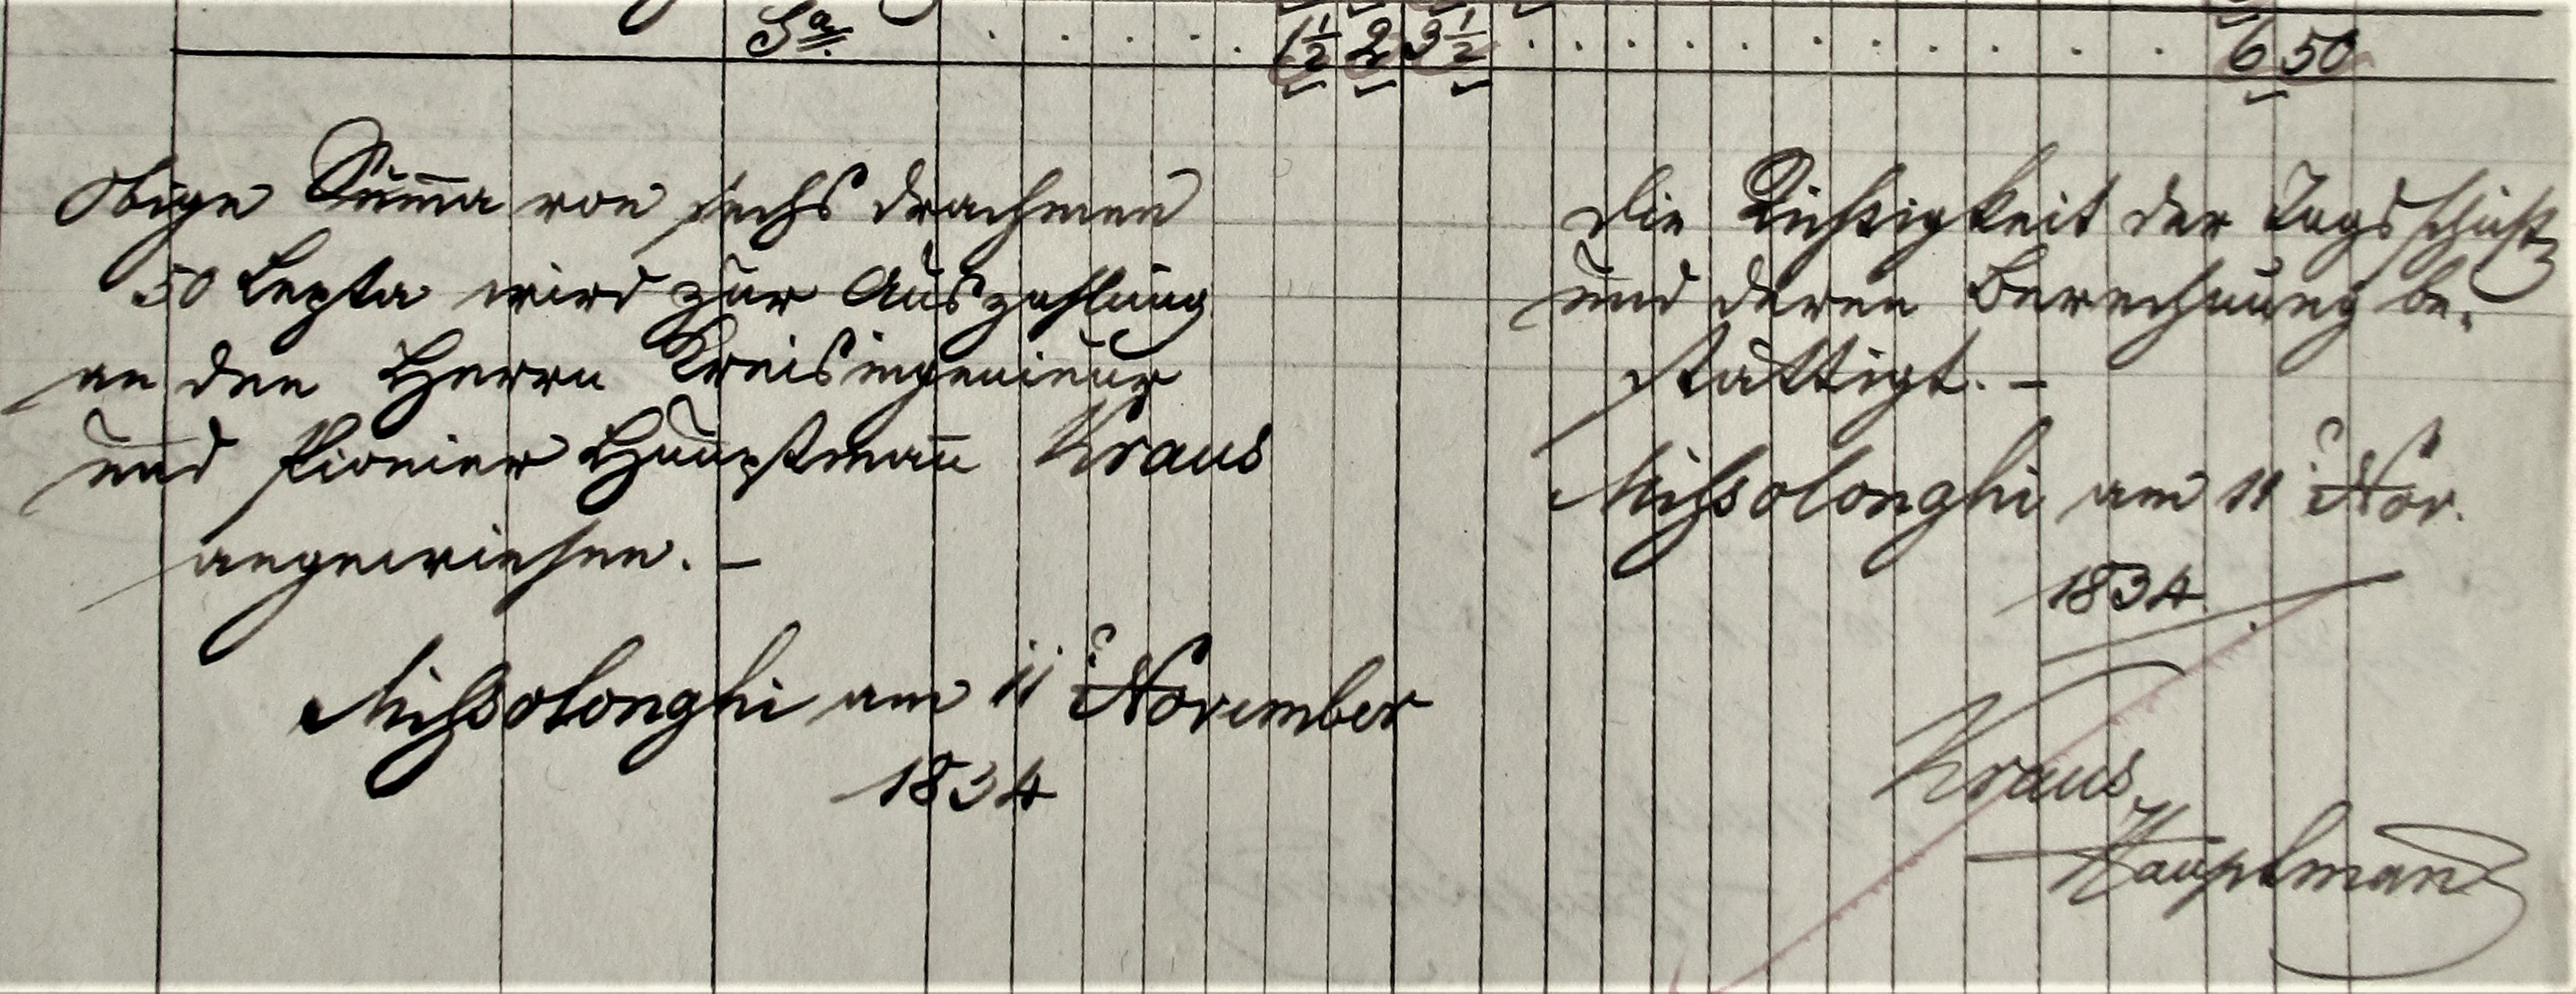 Sa. . . . . . 1½ 2 3½ . . . . . . . . . . . 6 50
Obige Summa von sechs Drachmen
50 Lepta wird zur Auszahlung
an den Herrn Kreisingenieur
und Pionier Hauptmann Kraus
angewiesen. –
Missolonghi am 11 November
1834
Die Richtigkeit der Tagsschicht
und deren Berechnung be-
stättigt. –
Missolonghi am 11 Nov.
1834.
Kraus
Hauptmann